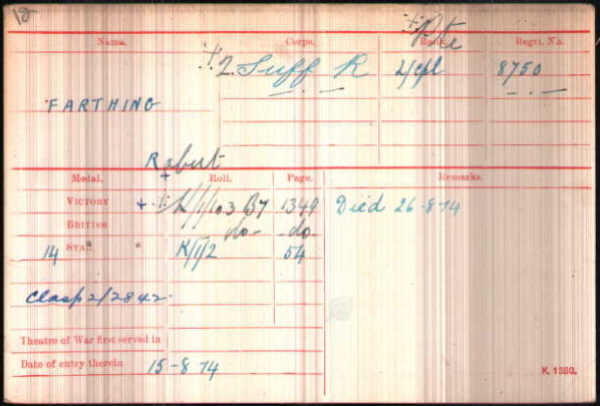 Name. Corps. Rank. Regtl. No.
Pte
2. Suff R L/Cpl 8750
FARTHING
Robert
Medal. Roll. Page. Remarks.
VICTORY K/1/103 B7 1349 Died 26-8-14
BRITISH -do- -do-
14 STAR K/1/2 54
Clasp 2/2842.
Theatre of War first served in
Date of entry therein 15-8-14
K. 1380.